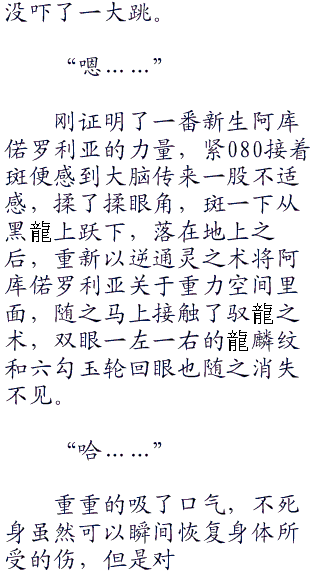 没吓了一大跳。
“嗯……”
刚证明了一番新生阿库
偌罗利亚的力量，紧080接着
斑便感到大脑传来一股不适
感，揉了揉眼角，斑一下从
黑龍上跃下，落在地上之
后，重新以逆通灵之术将阿
库偌罗利亚关于重力空间里
面，随之马上接触了驭龍之
术，双眼一左一右的龍麟纹
和六勾玉轮回眼也随之消失
不见。
“哈……”
重重的吸了口气，不死
身虽然可以瞬间恢复身体所
受的伤，但是对